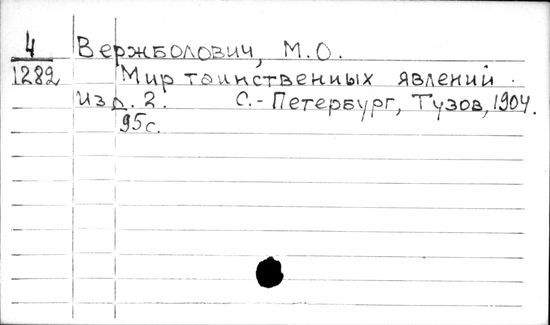 4 Вержболович, М.О.
1282 Мир таинственных явлений.
Изд. 2. С.-Петербург, Тузов, 1904.
95с.